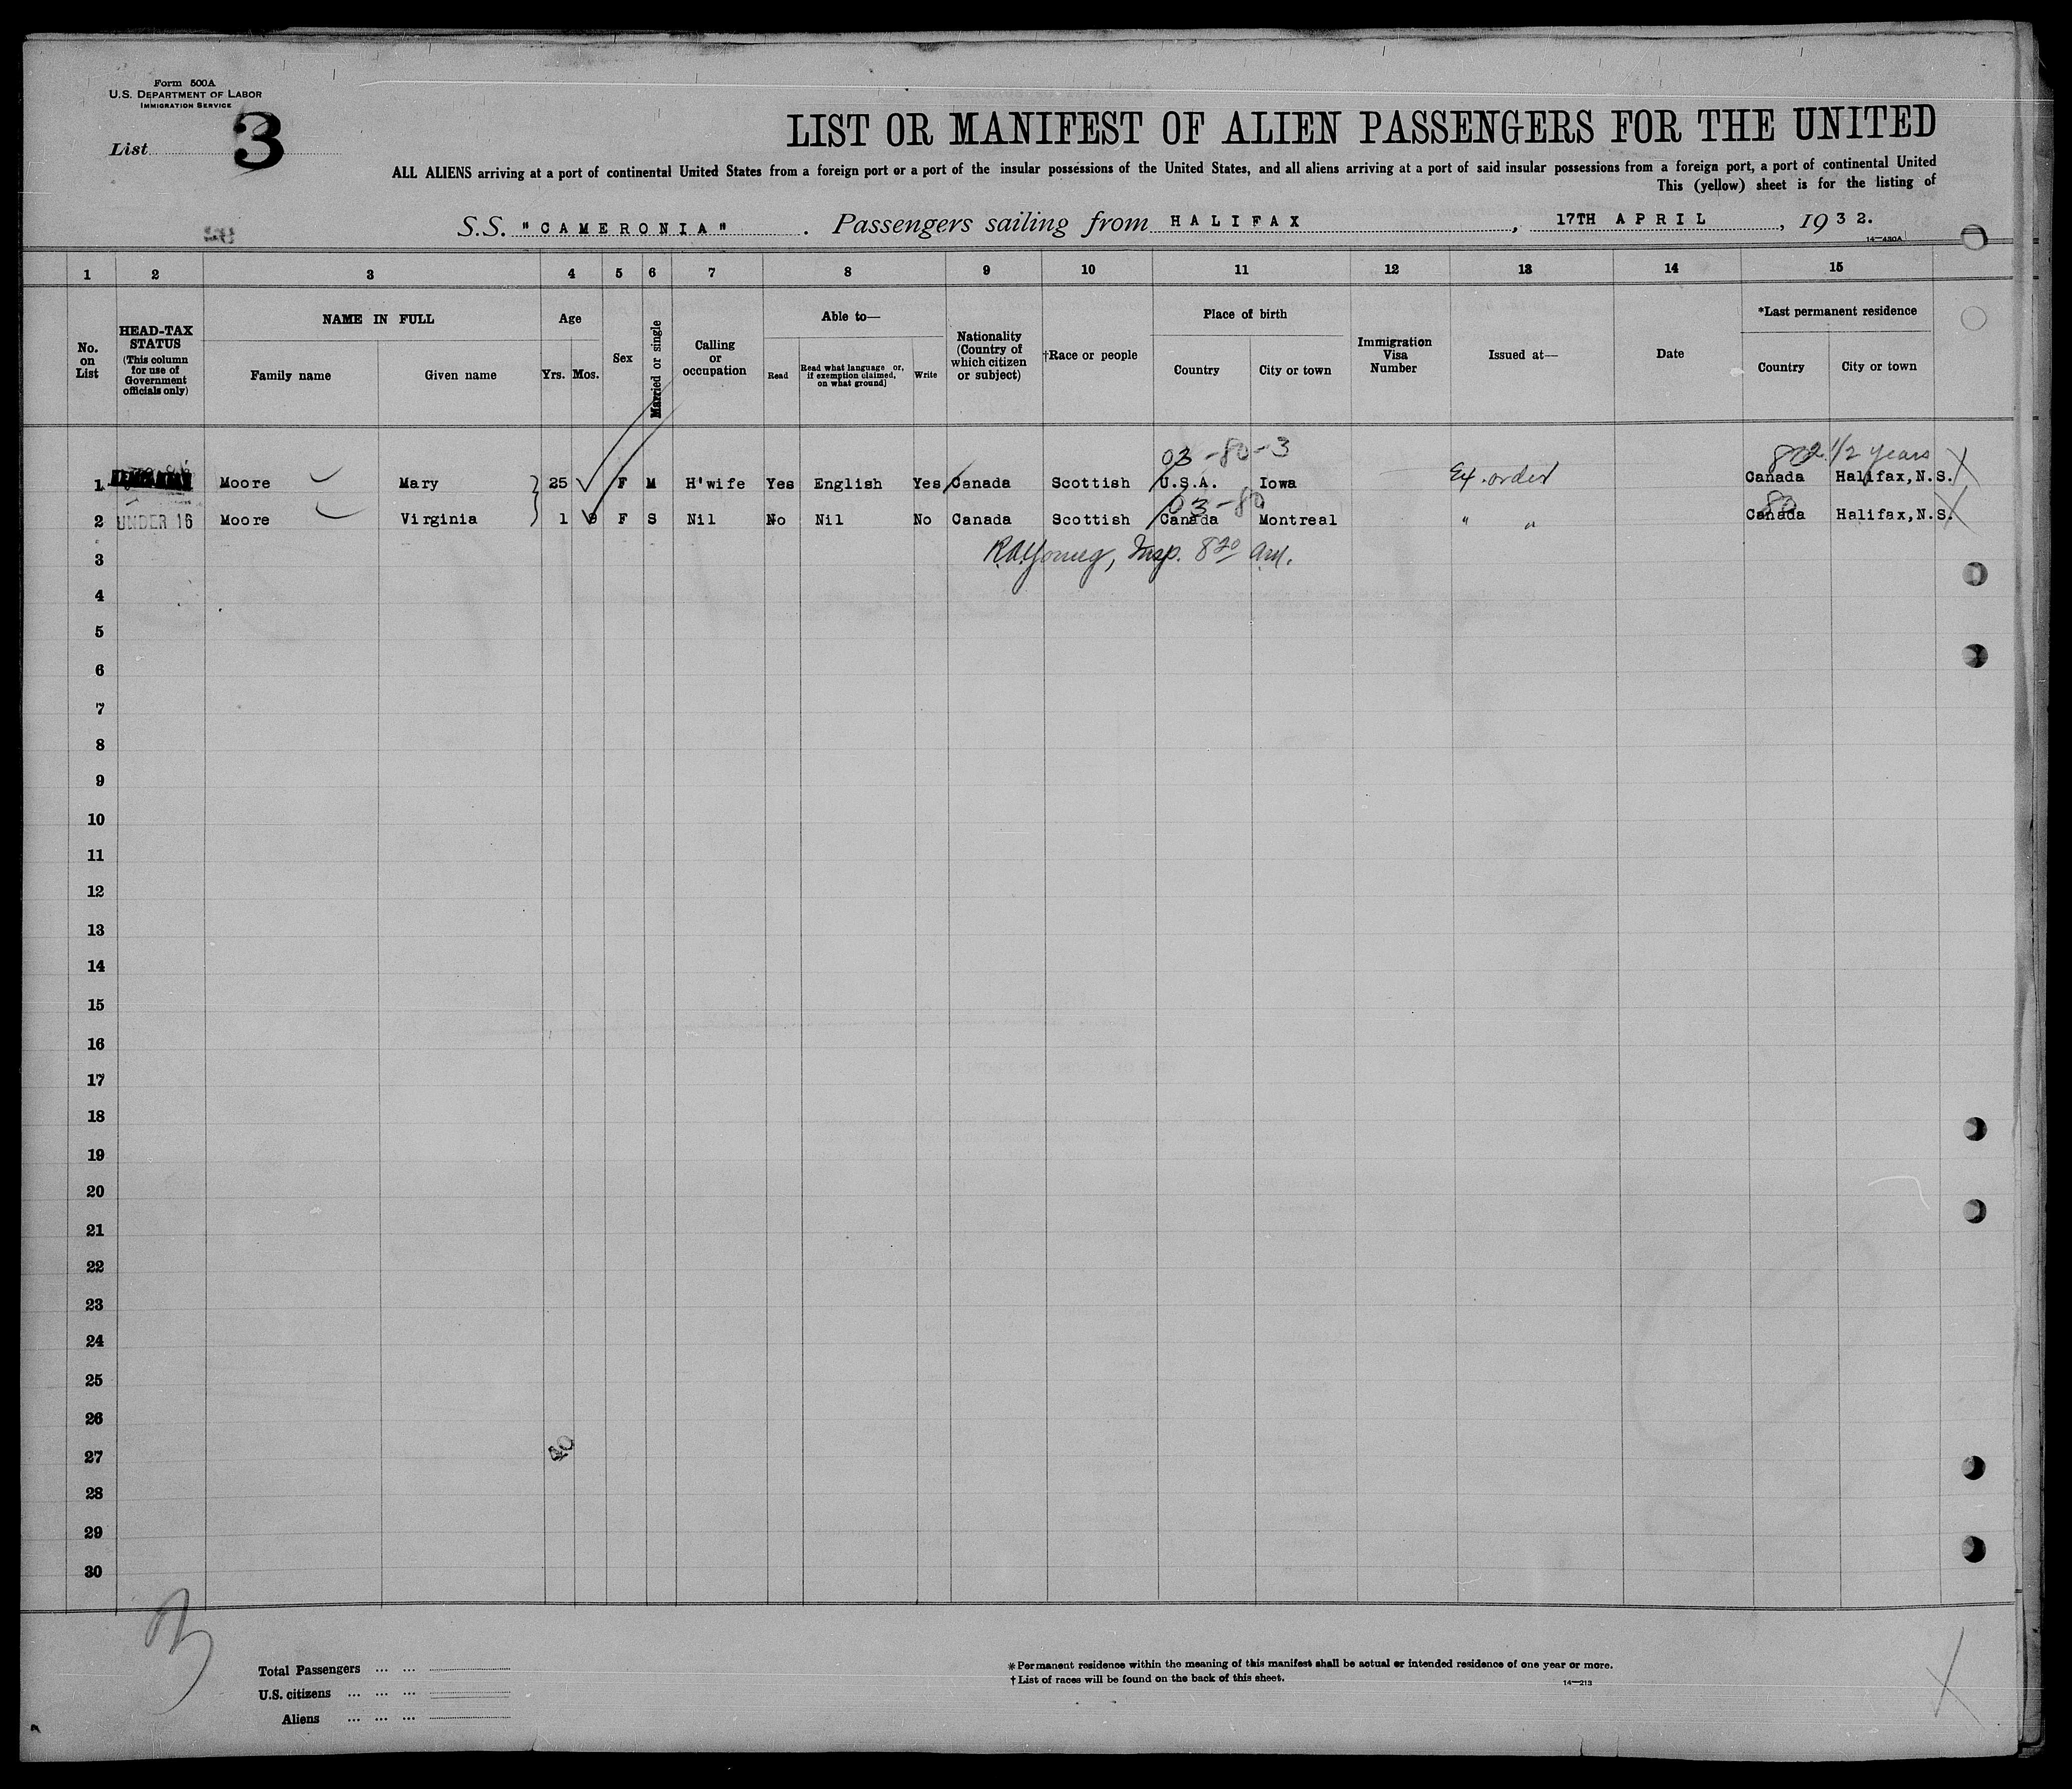 Form 500A
U.S. DEPARTMENT OF LABOR
IMMIGRATION SERVICE
List 3
LIST OR MANIFEST OF ALIEN PASSENGERS FOR THE UNITED
ALL ALIENS arriving at a port of continental United States from a foreign port or a port of the insular possessions of the United States, and all aliens arriving at a port of said insular possessions from a foreign port, a port of continental United
This (yellow) sheet is for the listing of
S.S. "CAMERONIA". Passengers sailing from HALIFAX, 17TH APRIL, 1932.
14—430A
1 2 3 4 5 6 7 8 9 10 11 12 13 14 15
No. on List
HEAD-TAX STATUS (This column for use of Government officials only)
NAME IN FULL
Family name Given name
Age
Yrs. Mos.
Sex
Married or single
Calling or occupation
Able to—
Read Read what language or, if exemption claimed, on what ground] Write
Nationality (Country of which citizen or subject)
†Race or people
Place of birth
Country City or town
Immigration Visa Number
Issued at—
Date
*Last permanent residence
Country City or town
03-80-3 2 1/2 years
1 Moore Mary 25 F M H'wife Yes English Yes Canada Scottish U.S.A. Iowa Ex. order Canada Halifax,N.S.
03-80 80
2 UNDER 16 Moore Virginia 1 9 F S Nil No Nil No Canada Scottish Canada Montreal " " Canada Halifax,N.S.
3 Young, Insp. 8 20 am.
4
5
6
7
8
9
10
11
12
13
14
15
16
17
18
19
20
21
22
23
24
25
26
27
28
29
30
Total Passengers ... ...
U.S. citizens ... ... ...
Aliens ... ... ...
*Permanent residence within the meaning of this manifest shall be actual or intended residence of one year or more.
†List of races will be found on the back of this sheet.
14—213